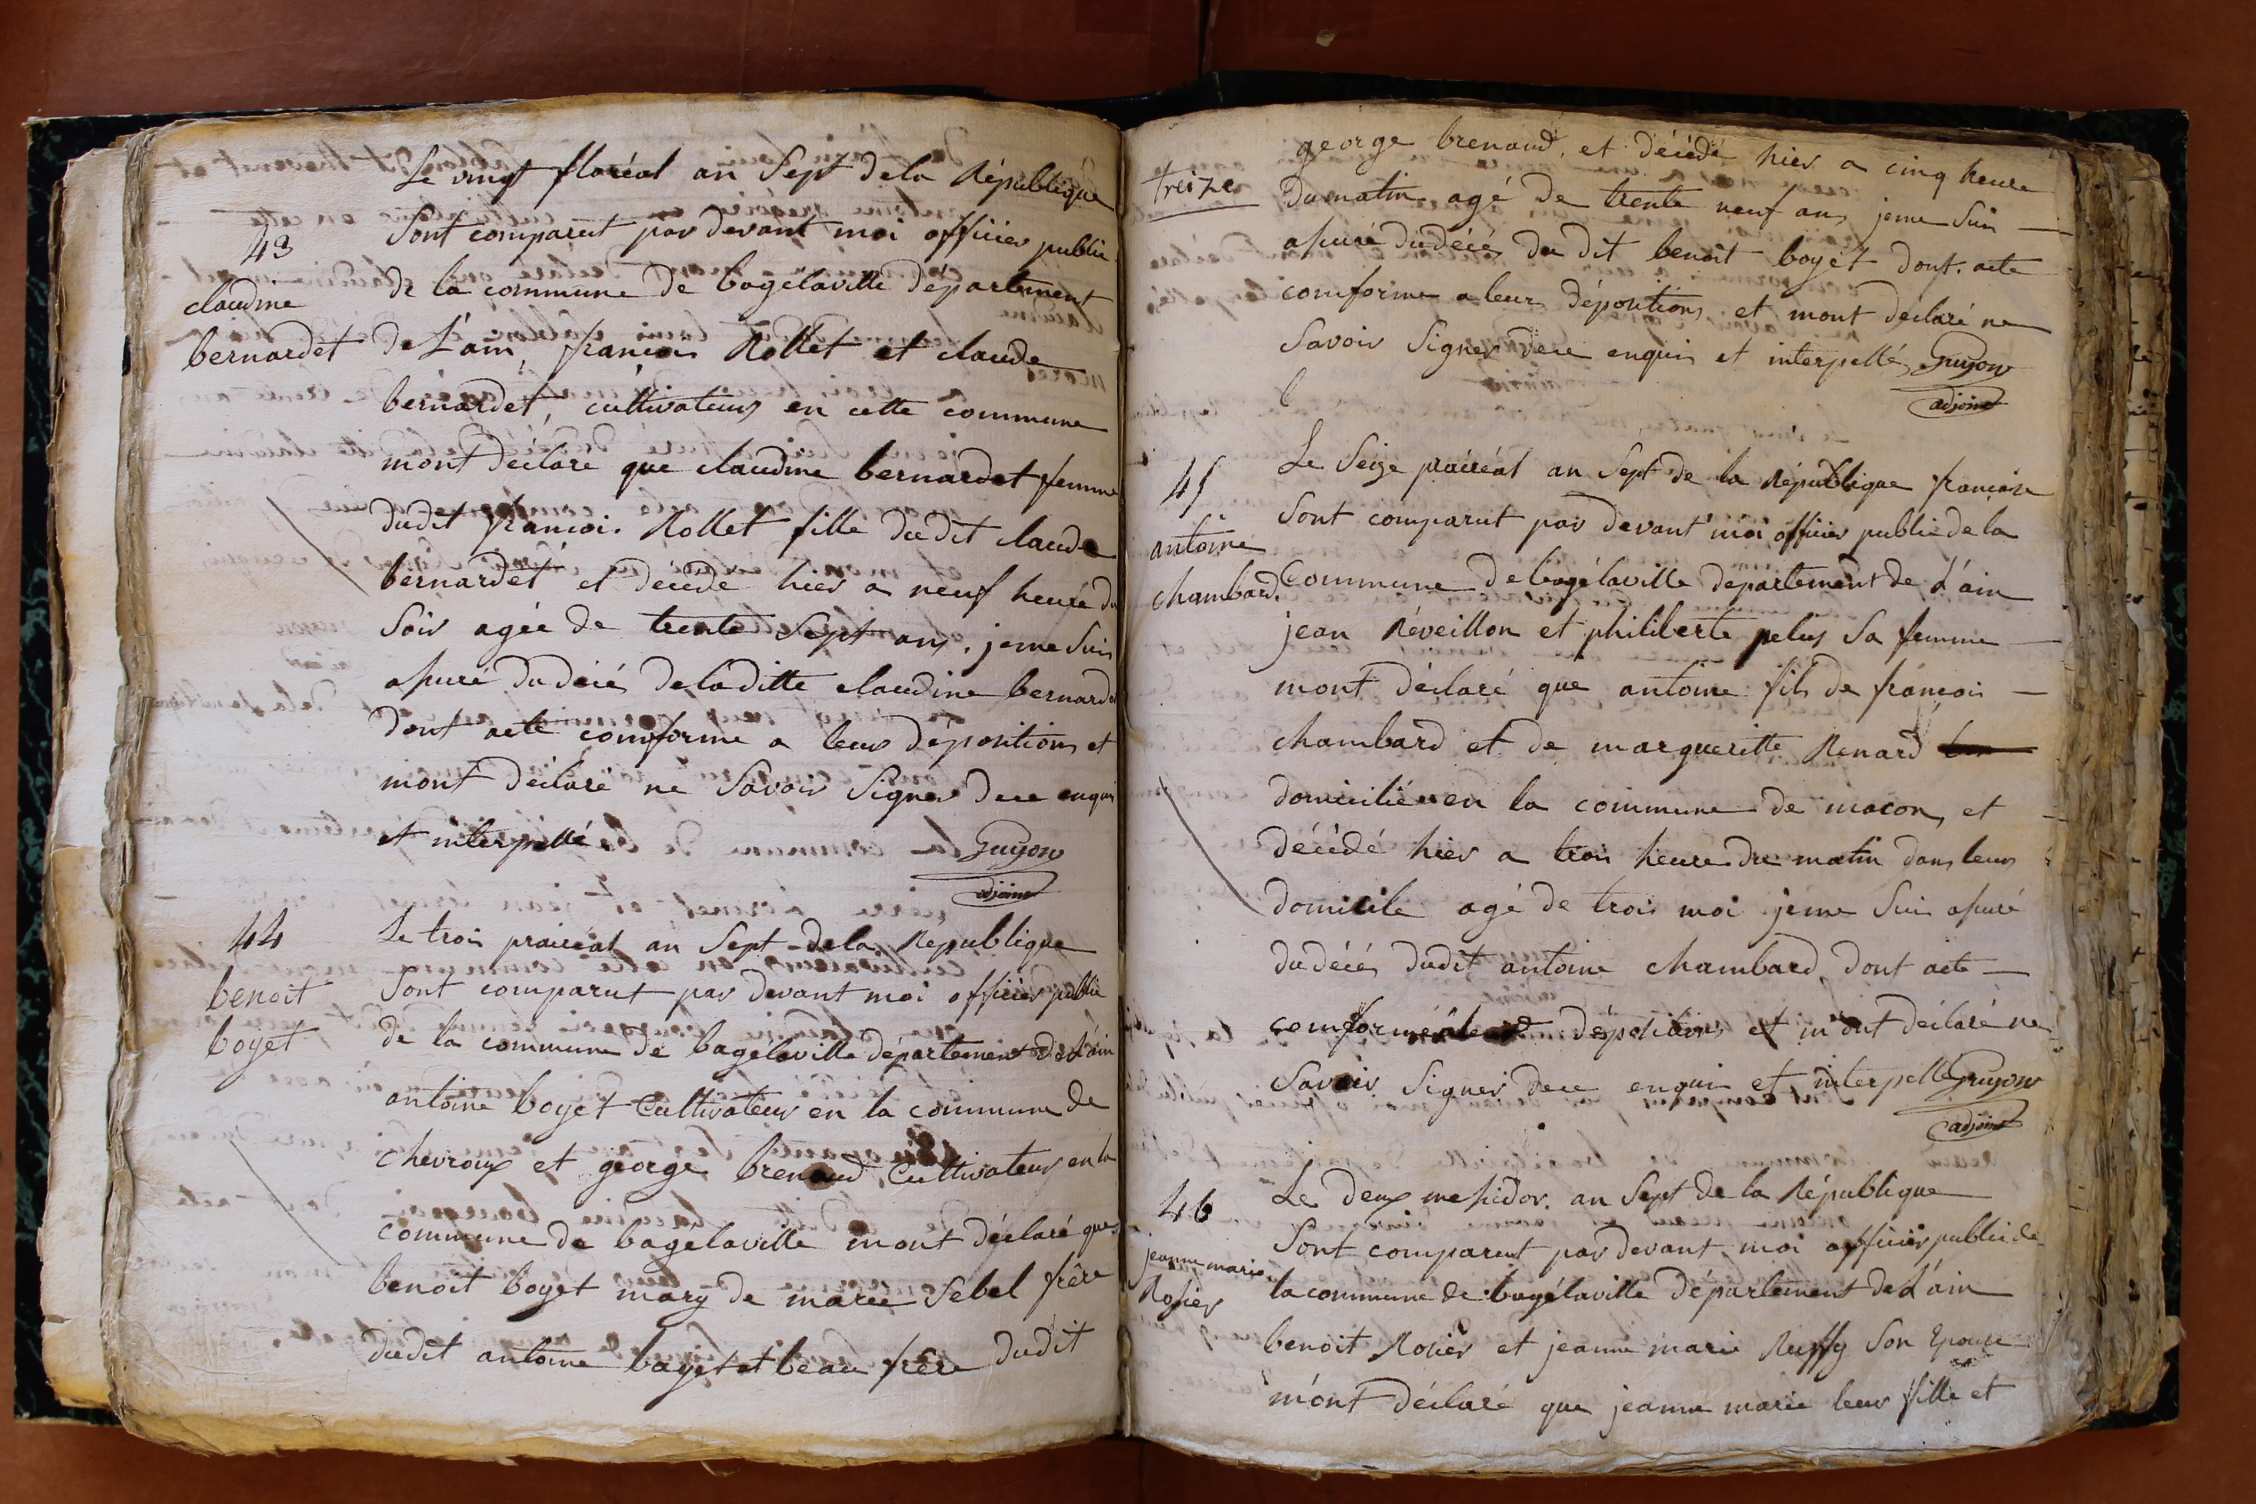 Le vingt floréal an Sept de la République
43
Sont comparut par devant moi officier public
claudine
de la commune de bagelaville département
bernardet
de L'ain, françois Rollet et claude
bernardet, cultivateurs en cette commune
mont déclaré que claudine bernardet femme
dudit françois Rollet fille dudit claude
bernardet et décédé hier a neuf heure du
Soir agée de trente Sept ans, jeme Suis
asuré du décé de laditte claudine bernardet
dont acte comforme a leur dépositions et
mont déclaré ne Savoir Signer dece enquis
et interpellé
Guyon
adjoint
44
benoit
boyet
Le trois prairéal an Sept de la République
Sont comparut par devant moi officier public
de la commune de bagélaville département de L'ain
antoine boyet Cultivateur en la commune de
chevroux et george brenaud, Cultivateur en la
commune de bagelaville mont déclaré que
benoit boyet mary de marie Sebel frère
dudit antoine bayet et beau frère dudit
treize
george brenaud, et décédé hier a cinq heure
du matin agé de trente neuf ans jeme Suis
asuré du décés du dit benoit boyet dont acte
comforme a leurs dépositions et mont déclaré ne
Savoir Signer dece enquis et interpellé Guyon
adjoint
45
antoine
chambard.
Le Seize prairéal an Sept de la République françoise
Sont comparut par devant moi officier public de la
Commune de bagélaville departement de L'ain
jean Réveillon et philiberte pelus Sa femme
mont déclaré que antoine fils de françois
chambard et de margueritte Renard
domicilié en la commune de macon, et
décédé hier a trois heure du matin dans leur
domicile agé de trois moi jeme Suis asuré
du décés dudit antoine chambard, dont acte
comforme a leur dépositions et m'ont déclaré ne
Savoir Signer dece enquis et interpellé Guyon
adjoint
46
jeanne marie
Rosier
Le deux mesidor an Sept de la République
Sont comparut par devant moi officier public de
la commune de bagélaville Département de L'ain
benoit Rosier et jeanne marie Ruffy Son Epouse
m'ont déclaré que jeanne marie leur fille et